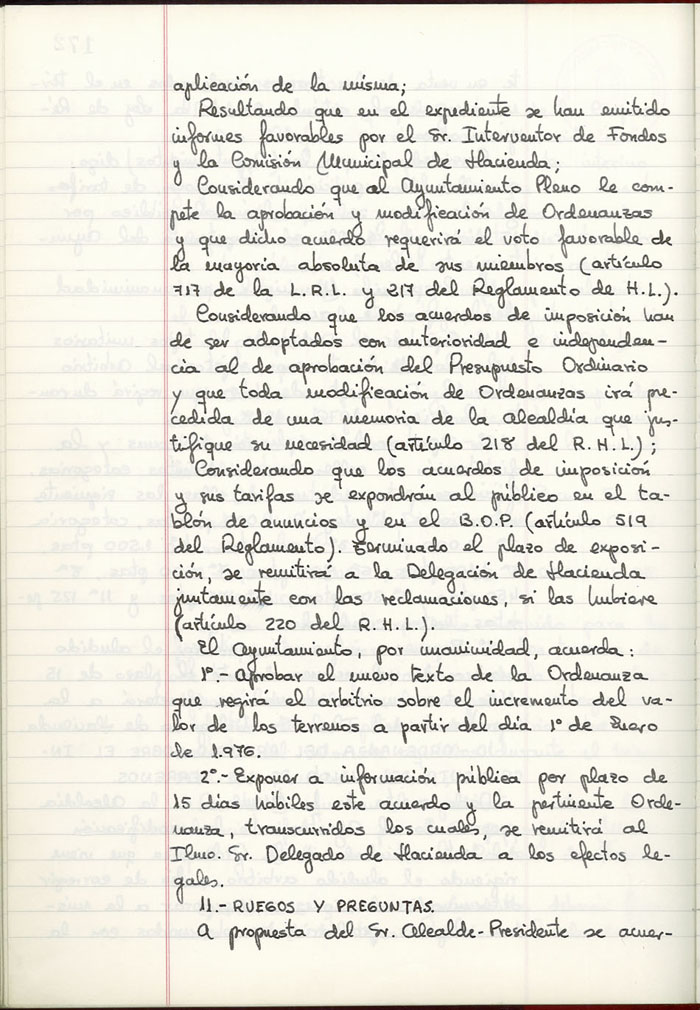 aplicación de la misma;
Resultando que en el expediente se han emitido
informes favorables por el Sr. Interventor de Fondos
y la Comisión Municipal de Hacienda;
Considerando que al Ayuntamiento Pleno le com-
pete la aprobación y modificación de Ordenanzas
y que dicho acuerdo requerirá el voto favorable de
la mayoría absoluta de sus miembros (artículo
717 de la L.R.L. y 217 del Reglamento de H.L.).
Considerando que los acuerdos de imposición han
de ser adoptados con anterioridad e independen-
cia al de aprobación del Presupuesto Ordinario
y que toda modificación de Ordenanzas irá pre-
cedida de una memoria de la Alcaldía que jus-
tifique su necesidad (artículo 218 del R.H.L.);
Considerando que los acuerdos de imposición
y sus tarifas se expondrán al público en el ta-
blón de anuncios y en el B.O.P. (artículo 519
del Reglamento). Terminado el plazo de exposi-
ción, se remitirá a la Delegación de Hacienda
juntamente con las reclamaciones, si las hubiere
(artículo 220 del R.H.L.).
El Ayuntamiento, por unanimidad, acuerda:
1º.- Aprobar el nuevo texto de la Ordenanza
que regirá el arbitrio sobre el incremento del va-
lor de los terrenos a partir del día 1º de Enero
de 1.976.
2º.- Exponer a información pública por plazo de
15 días hábiles este acuerdo y la pertinente Orde-
nanza, transcurridos los cuales, se remitirá al
Ilmo. Sr. Delegado de Hacienda a los efectos le-
gales.
11.- RUEGOS Y PREGUNTAS.
A propuesta del Sr. Alcalde-Presidente se acuer-